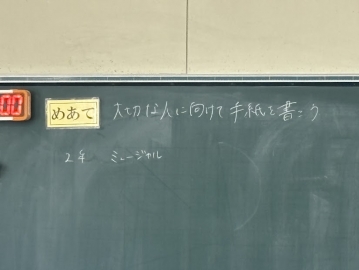 めあて 大切な人に向けて手紙を書こう
2年 ミュージカル